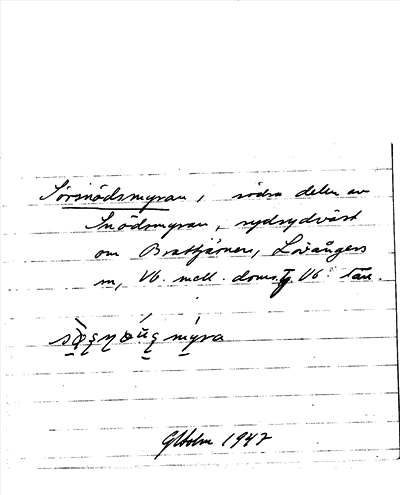 Sörsnödsmyran, södra delen av
Snödmyran, sydsydväst
om Brattjärnen, Lövångers
sn, Vb. mell. doms. Vb. län.
myra
Gösta Holm 1947